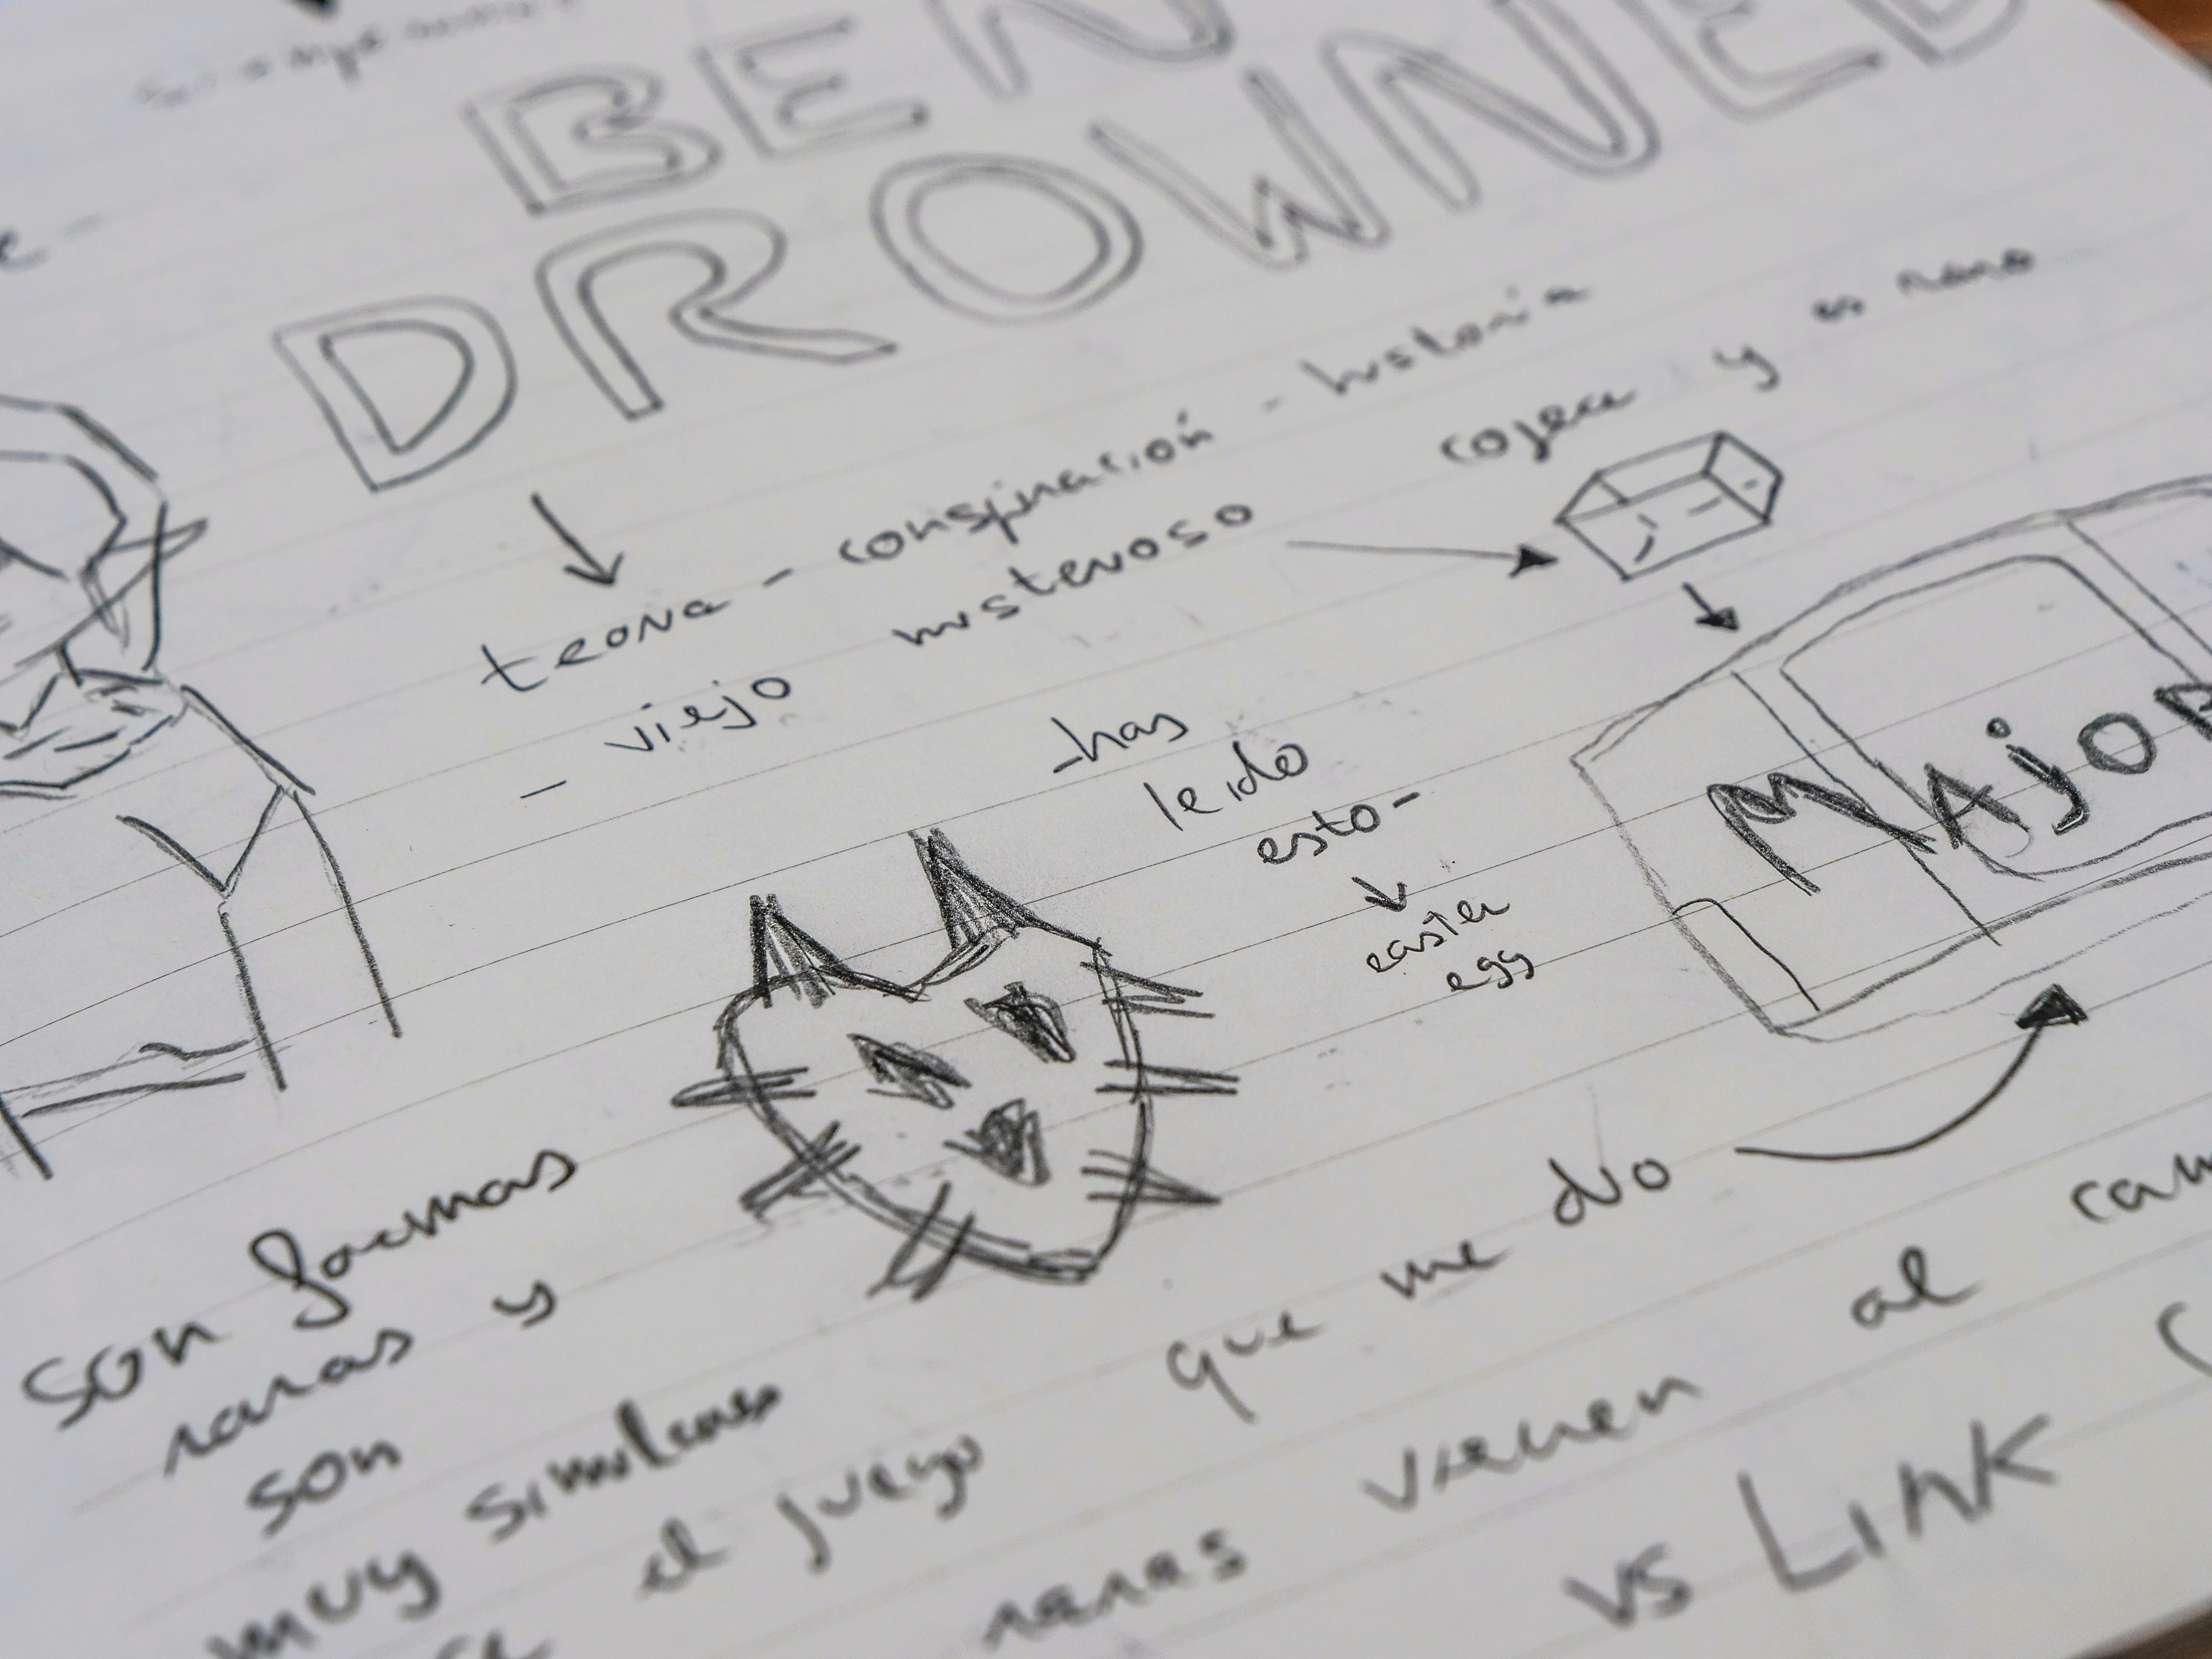 BEN
DROWNED
teoria - conspiración - historia
- viejo misterioso
cojera y es raro
MAJOR
-has
leido
esto-
easter
egg
son formas
raras y
son
muy similares
el juego que me dio
raras vienen al
vs LINK